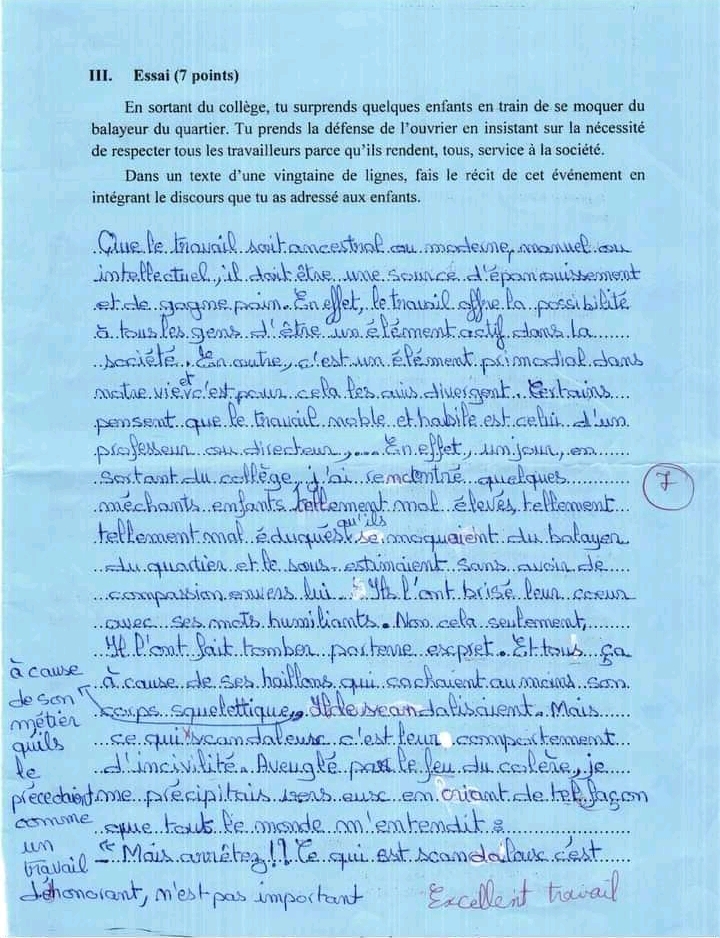 III. Essai (7 points)
En sortant du collège, tu surprends quelques enfants en train de se moquer du
balayeur du quartier. Tu prends la défense de l'ouvrier en insistant sur la nécessité
de respecter tous les travailleurs parce qu'ils rendent, tous, service à la société.
Dans un texte d'une vingtaine de lignes, fais le récit de cet événement en
intégrant le discours que tu as adressé aux enfants.
Que le travail soit ancestral ou moderne, manuel ou
intellectuel, il doit être une source d'épanouissement
et de gagne pain. En effet, le travail offre la possibilité
à tous les gens d'être un élément actif dans la
société. En outre, c'est un élément primodial dans
notre vie et c'est pour cela les avis divergent. Certains
pensent que le travail noble et habile est celui d'un
professeur ou directeur,.... En effet, un jour, en
sortant du collège, j'ai remcontré quelques
méchants enfants tellement mal élevés tellement
7
tellement mal éduqués qu'ils se moquaient du balayer
du quartier et le sous-estimaient sans avoir de
compassion envers lui. Ils l'ont brisé leur coeur
avec ses mots humiliants. Non cela seulement,
Il l'ont fait tomber parterre exspret. Et tous ça
à cause de ses haillons qui cachaient au moins son
corps squelettique, Il de scandalisaient. Mais
ce qui scandaleux c'est leur comportement
d'incivilité. Aveuglé par le feu du colère, je
me précipitais vers eux en criant de tel façon
que tout le monde m'entendit :
"- Mais arrêtez!! Ce qui est scandalaux c'est
à cause
de son
métier
qu'ils
le
précedaient
comme
un
travail
déhonorant, n'est pas important
Excellent travail